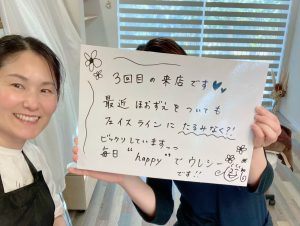 3回目の来店です
最近 ほおずえをついても
フェイスラインにたるみなく?!
ビックリしていますっっ
毎日 "happy" で ウレシー
です!!